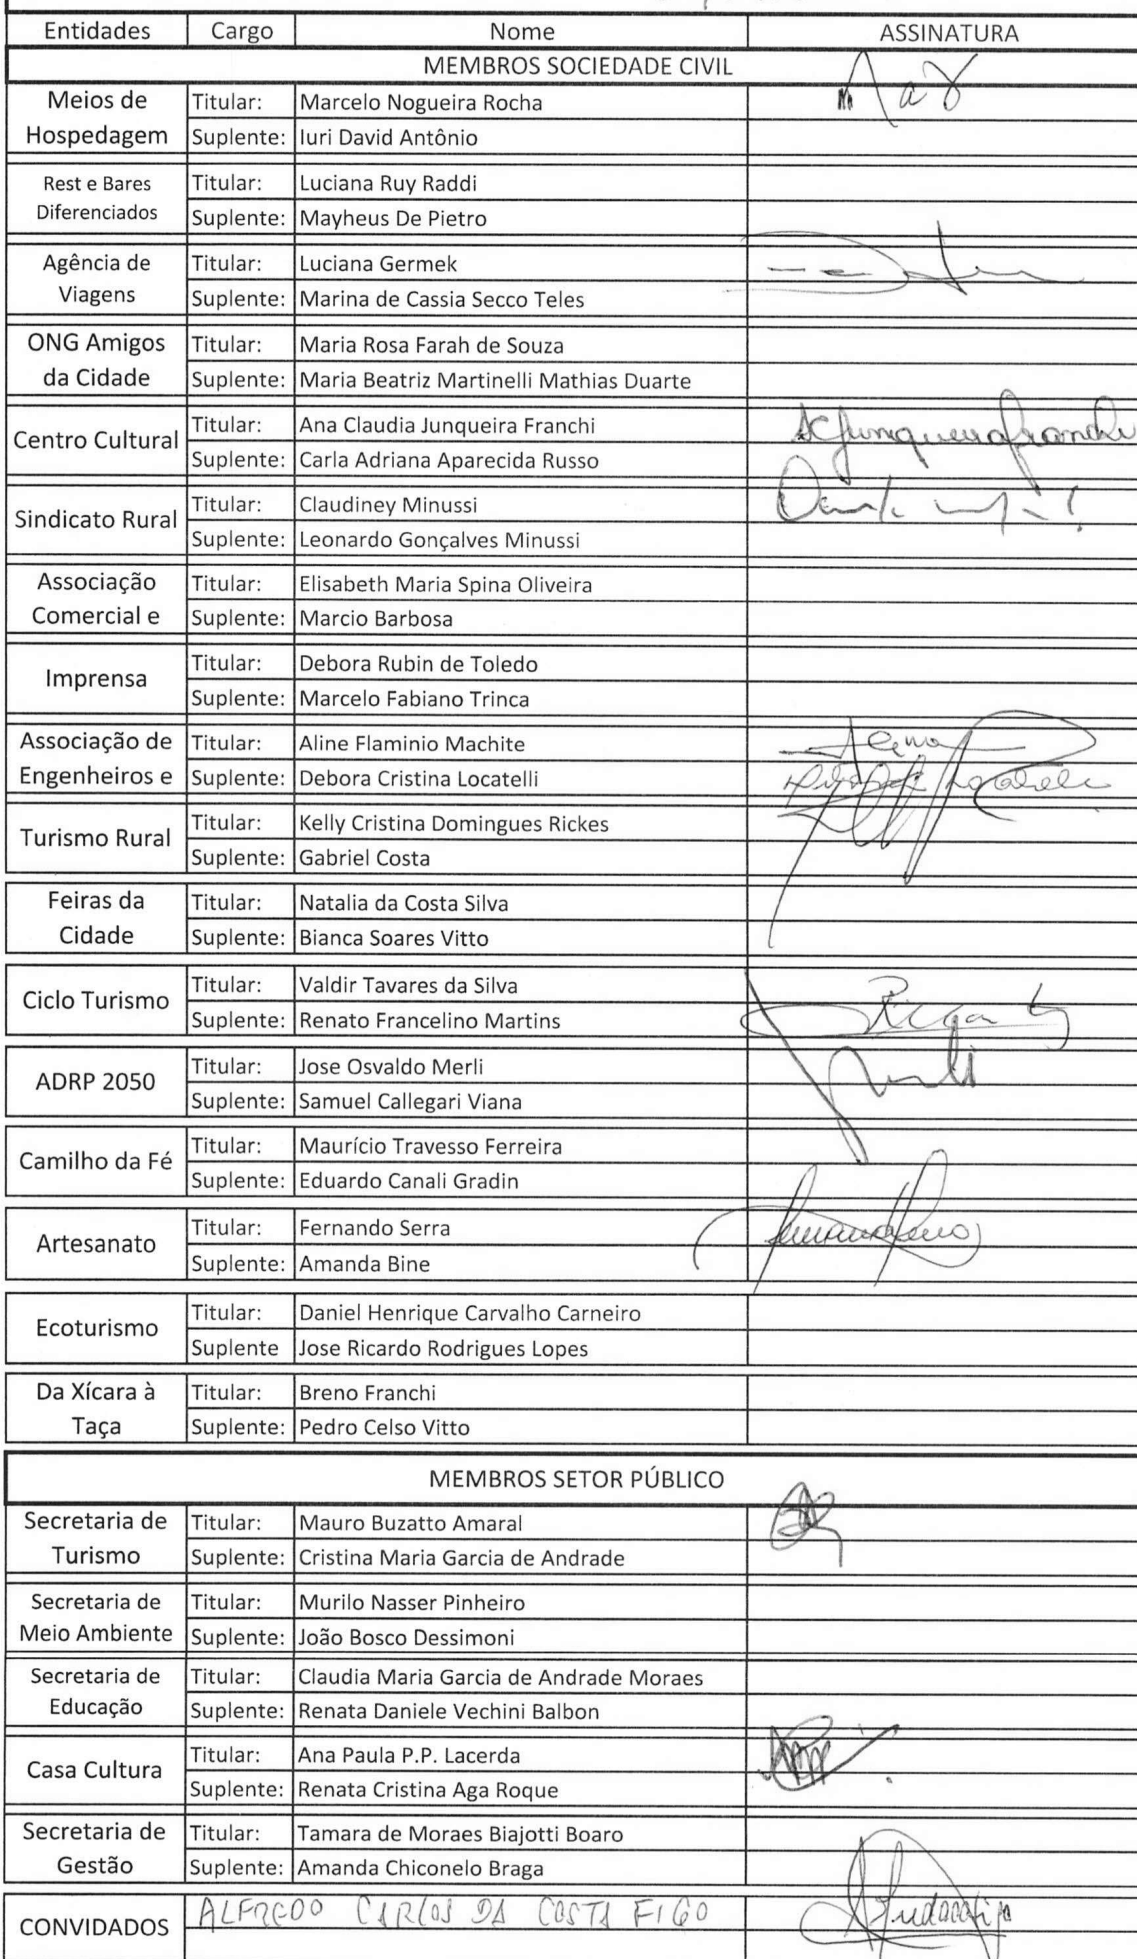 Entidades Cargo Nome ASSINATURA
MEMBROS SOCIEDADE CIVIL
Meios de Hospedagem Titular: Marcelo Nogueira Rocha
Suplente: Iuri David Antônio
Rest e Bares Diferenciados Titular: Luciana Ruy Raddi
Suplente: Mayheus De Pietro
Agência de Viagens Titular: Luciana Germek
Suplente: Marina de Cassia Secco Teles
ONG Amigos da Cidade Titular: Maria Rosa Farah de Souza
Suplente: Maria Beatriz Martinelli Mathias Duarte
Centro Cultural Titular: Ana Claudia Junqueira Franchi ACJunqueiraFranchi
Suplente: Carla Adriana Aparecida Russo
Sindicato Rural Titular: Claudiney Minussi
Suplente: Leonardo Gonçalves Minussi
Associação Comercial e Titular: Elisabeth Maria Spina Oliveira
Suplente: Marcio Barbosa
Imprensa Titular: Debora Rubin de Toledo
Suplente: Marcelo Fabiano Trinca
Associação de Engenheiros e Titular: Aline Flaminio Machite
Suplente: Debora Cristina Locatelli
Turismo Rural Titular: Kelly Cristina Domingues Rickes
Suplente: Gabriel Costa
Feiras da Cidade Titular: Natalia da Costa Silva
Suplente: Bianca Soares Vitto
Ciclo Turismo Titular: Valdir Tavares da Silva
Suplente: Renato Francelino Martins
ADRP 2050 Titular: Jose Osvaldo Merli
Suplente: Samuel Callegari Viana
Camilho da Fé Titular: Maurício Travesso Ferreira
Suplente: Eduardo Canali Gradin
Artesanato Titular: Fernando Serra
Suplente: Amanda Bine
Ecoturismo Titular: Daniel Henrique Carvalho Carneiro
Suplente Jose Ricardo Rodrigues Lopes
Da Xícara à Taça Titular: Breno Franchi
Suplente: Pedro Celso Vitto
MEMBROS SETOR PÚBLICO
Secretaria de Turismo Titular: Mauro Buzatto Amaral
Suplente: Cristina Maria Garcia de Andrade
Secretaria de Meio Ambiente Titular: Murilo Nasser Pinheiro
Suplente: João Bosco Dessimoni
Secretaria de Educação Titular: Claudia Maria Garcia de Andrade Moraes
Suplente: Renata Daniele Vechini Balbon
Casa Cultura Titular: Ana Paula P.P. Lacerda
Suplente: Renata Cristina Aga Roque
Secretaria de Gestão Titular: Tamara de Moraes Biajotti Boaro
Suplente: Amanda Chiconelo Braga
CONVIDADOS ALFREDO CARLOS DA COSTA FIGO